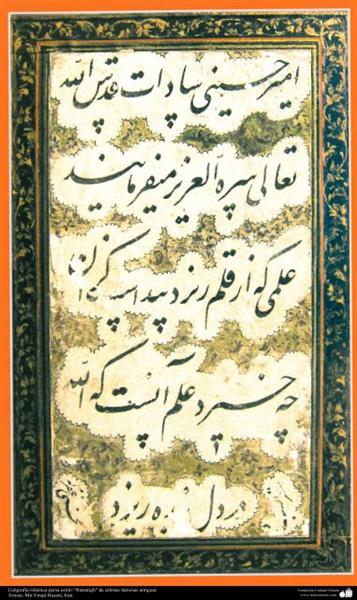 امیر حسینی سادات قدس الله
تعالی سره العزیز میفرمایند
علمی که از قلم ریزد پیداست کز آن
چه خیزد علم آنست که الله
در دل ریزد
Caligrafía islámica persa estilo "Nastaligh" de artistas famosas antiguas
Artista: Mir Emad Hasani, Irán
Fundación Cultural Oriente
www.islamoriente.com